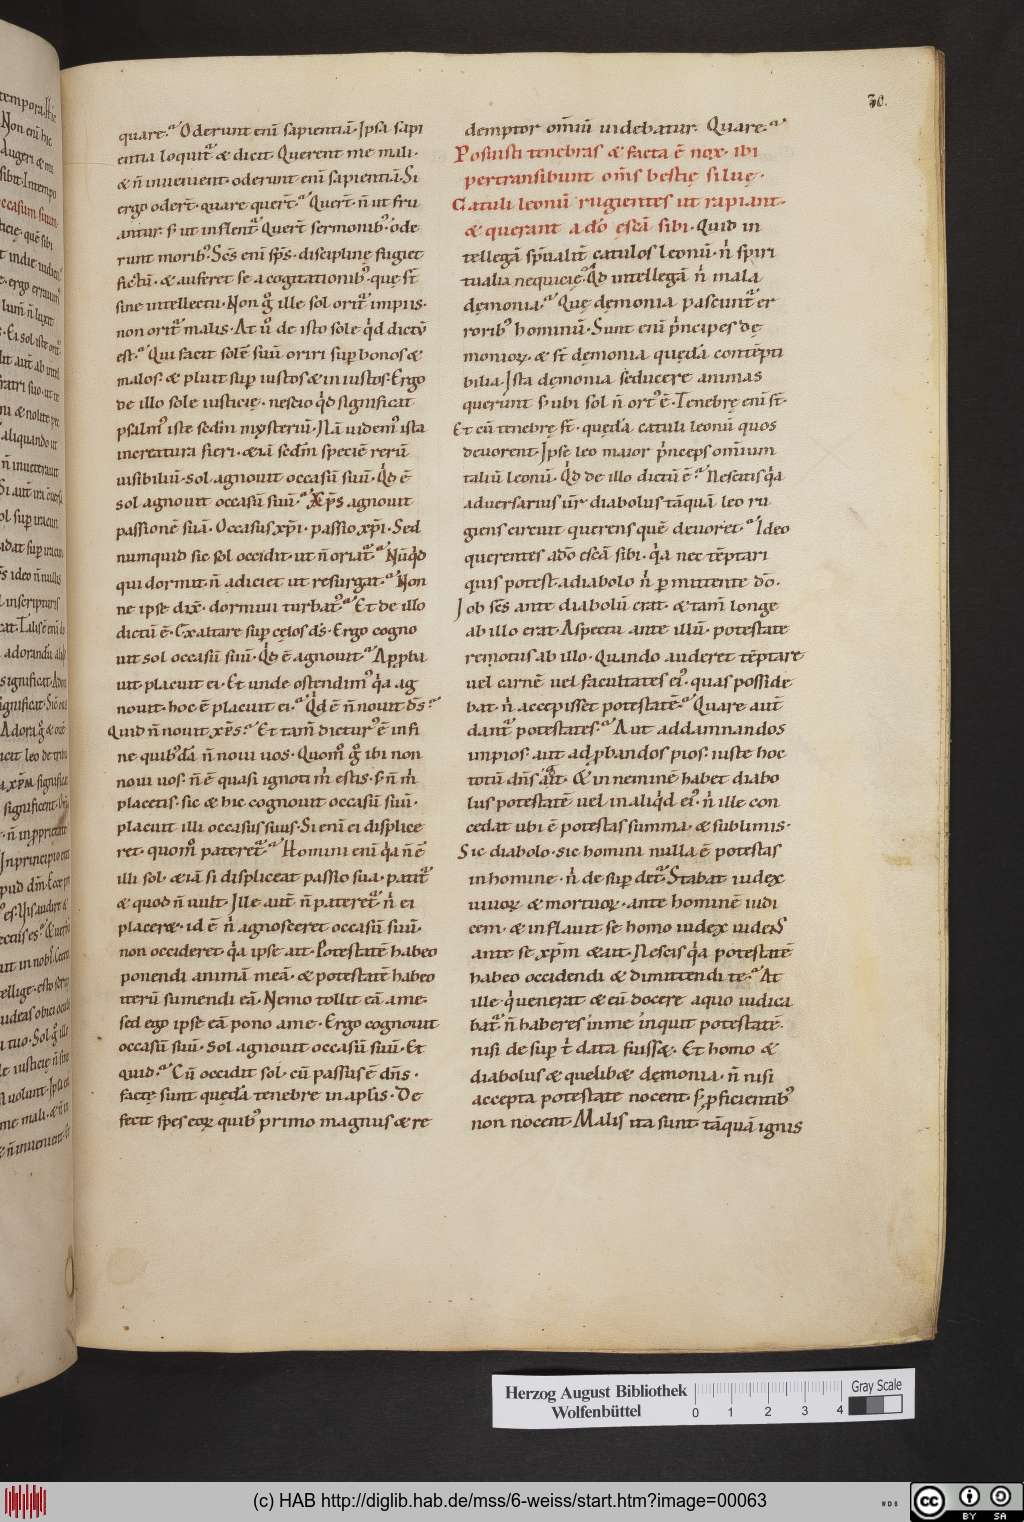 30.
quare. Oderunt eni̅ sapientia̅. Ipsa sapi
entia loquit̅ & dicit. Querent me mali.
& n̅ invenient. oderunt eni̅ sapientia̅. Si
ergo oder̅t. quare quer̅t. Quer̅t. n̅ ut fru
antur. s; ut inflent̅. Quer̅t sermonib; ode
runt morib; Sc̅s eni̅ sp̅s. disciplinę fugiet
fictu̅. & auferet se a cogitationib; que s̅t
sine intellectu. Non g̊ ille sol orit̅ impiis.
non orit̅ malis. At ů de isto sole q̇d dictu̅
est. Qui facit sole̅ suu̅ oriri sup bonos &
malos. & pluit sup iustos & iniustos. Ergo
de illo sole iusticię. nescio q̇d significat
psalm; iste sed̅m mysteriu̅. Na̅ uidem; ista
increatura fieri. & ia̅ sed̅m specie̅ reru̅
uisibiliu̅. sol agnouit occasu̅ suu̅. Q̇d e̅
sol agnouit occasu̅ suu̅. Xp̅s agnouit
passione̅ sua̅. Occasus xp̅i. passio xp̅i. Sed
numquid sic sol occidit. ut n̅ oriat̅. Nu̅q̇d
qui dormit n̅ adiciet ut resurgat. Non
ne ipse dix̅. dormiui turbat;. Et de illo
dictu̅ e̅. Exaltare sup cęlos d̅s. Ergo cogno
uit sol occasu̅ suu̅. Q̇d e̅ agnouit. Apᵽba
uit. placuit ei. Et unde ostendim; q̇a ag
nouit. hoc e̅ placuit ei. Q̇d e̅ n̅ nouit d̅s.
Quid n̅ nouit xp̅s. Et tam̅ dictur; e̅ infi
ne quib;da̅ n̅ noui uos. Quom̊ g̊ ibi non
noui uos. n̅ e̅ quasi ignoti m̅ estis. s; n̅ m̅
placetis. sic & hic cognouit occasu̅ suu̅.
placuit illi occasus suus. Si eni̅ ei displice
ret. quom̊ pateret̅. Homini eni̅ q̇a n̅ e̅
illi sol. & ia̅ si displiceat passio sua. patit̅
& quod n̅ uult. Ille aut̅ n̅ pateret̅. n̅ ei
placer&. id e̅ n̅ agnosceret occasu̅ suu̅.
non occideret q̇a ipse ait. Potestate̅ habeo
ponendi anima̅ mea̅. & potestate̅ habeo
iteru̅ sumendi ea̅. Nemo tollit ea̅ ame.
sed ego ipse ea̅ pono ame. Ergo cognouit
occasu̅ suu̅. Sol agnouit occasu̅ suu̅. Et
quid. Cu̅ occidit sol. cu̅ passus e̅ dn̅s.
factę sunt queda̅ tenebre in aplis̅. De
fecit spes eoꝝ quib; primo magnus & re
demptor om̅iu̅ uidebatur. Quare.
Posuisti tenebras & facta e̅ nox. ibi
pertransibunt om̅s bestię siluę.
Catuli leonu̅ rugientes ut rapiant.
& querant a do̅ ęsca̅ sibi. Quid in
tellega̅ sp̅ualit̅ catulos leonu̅. n̅ spiri
tualia nequicię; Q̇d intellega̅ n̅ mala
dęmonia. Quę dęmonia pascunt̅ er
rorib; hominu̅. Sunt eni̅ p̅ncipes dę
monioꝝ. & s̅t dęmonia quęda̅ conte̅pti
bilia. Ista dęmonia seducere animas
querunt s; ubi sol n̅ ort; e̅. Tenebrę eni̅ s̅t.
Et cu̅ tenebrę s̅t. quęda̅ catuli leonu̅ quos
deuorent. Ipse leo maior p̅nceps om̅ium
taliu̅ leonu̅. Q̇d de illo dictu̅ e̅. Nescitis q̇a
aduersarius ur̅ diabolus ta̅qua̅ leo ru
giens circuit querens que̅ deuoret. Ideo
querentes ado̅ esca̅ sibi. q̇a nec te̅ptari
quis potest adiabolo n̅ pmittente do̅.
Iob sc̅s ante diabolu̅ erat. & tam̅ longe
ab illo erat. Aspectu ante illu̅. potestate
remotus ab illo. Quando auderet te̅ptare
uel carne̅ uel facultates ei; quas posside
bat. n̅ accepisset potestate̅. Quare aut̅
dant̅ potestates. Aut addamnandos
impios. aut adᵽbandos pios. iuste hoc
totu̅ dn̅s ait. & in nemine̅ habet diabo
lus potestate̅ uel in aliq̇d ei;. n̅ ille con
cedat ubi e̅ potestas summa. & sublimis.
Sic diabolo. sic homini nulla e̅ potestas
in homine. n̅ de sup det̅. Stabat iudex
uiuoꝝ & mortuoꝝ. ante homine̅ iudi
cem. & inflauit se homo iudex iudex
ante se xp̅m & ait. Nescis q̇a potestate̅
habeo occidendi & dimittendi te. At
ille q̇uenerat & eu̅ docere aquo iudica
bat̅. n̅ haberes in me inquit potestate̅.
nisi de sup t̅ data fuiss&. Et homo &
diabolus & quelib& dęmonia. n̅ nisi
accepta potestate nocent. s; ᵽficientib;
non nocent. Malis ita sunt ta̅qua̅ ignis
Herzog August Bibliothek
Wolfenbüttel
0 1 2 3 4
Gray Scale
(c) HAB http://diglib.hab.de/mss/6-weiss/start.htm?image=00063
WDB
cc BY SA